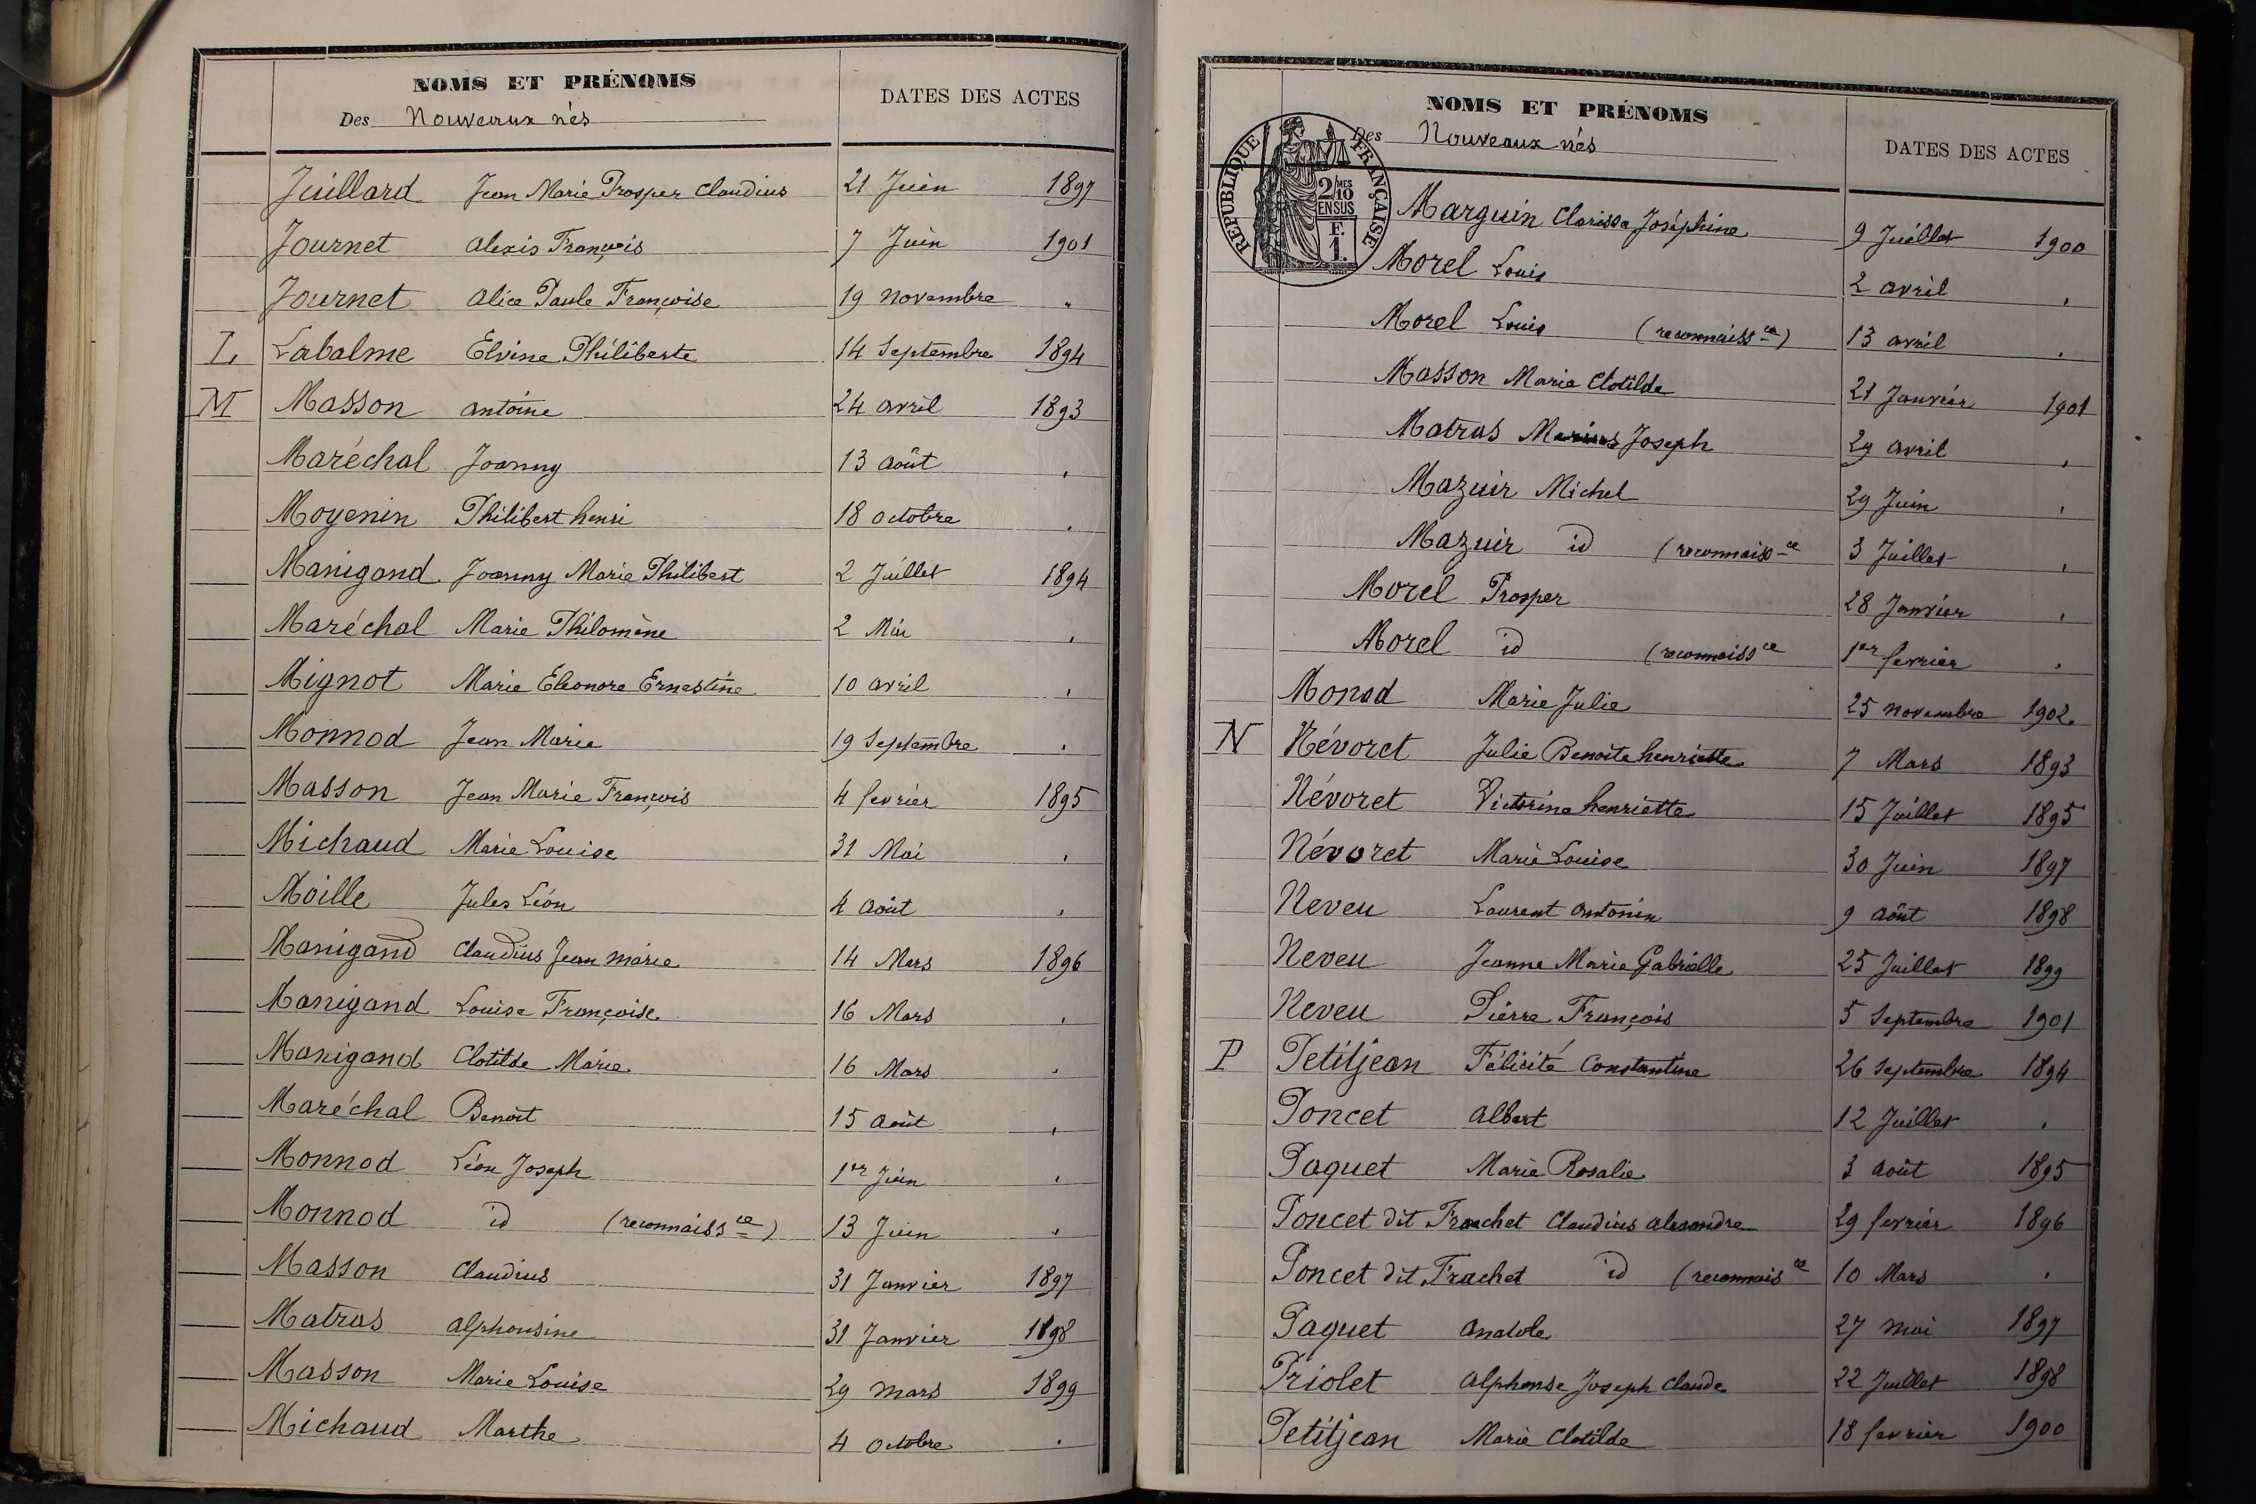 NOMS ET PRÉNOMS
Des Nouveaux nés
DATES DES ACTES
Juillard Jean Marie Prosper Claudius 21 Juin 1897
Journet Alexis François 7 Juin 1901
Journet Alice Paule Françoise 19 novembre "
L Labalme Elvine Philiberte 14 Septembre 1894
M Masson Antoine 24 avril 1893
Maréchal Joanny 13 août "
Moyenin Philibert henri 18 octobre "
Manigand Joanny Marie Philibert 2 Juillet 1894
Maréchal Marie Philomène 2 Mai "
Mignot Marie Eléonore Ernestine 10 avril "
Monnod Jean Marie 19 Septembre "
Masson Jean Marie François 4 fevrier 1895
Michaud Marie Louise 31 Mai "
Moille Jules Léon 4 août "
Manigand Claudius Jean Marie 14 Mars 1896
Manigand Louise Françoise 16 Mars "
Manigand Clotilde Marie 16 Mars "
Maréchal Benoît 15 août "
Monnod Léon Joseph 1er Juin "
Monnod id (reconnaissce) 13 Juin "
Masson Claudius 31 Janvier 1897
Matras Alphonsine 31 Janvier 1898
Masson Marie Louise 29 mars 1899
Michaud Marthe 4 octobre "
NOMS ET PRÉNOMS
Des Nouveaux nés
DATES DES ACTES
RÉPUBLIQUE FRANÇAISE
2/MES
10
EN SUS
F.
1.
Marguin Clarissa Joséphine 9 Juillet 1900
Morel Louis 2 avril "
Morel Louis (reconnaissce) 13 avril "
Masson Marie Clotilde 21 Janvier 1901
Matras Marius Joseph 29 avril "
Mazuir Michel 29 Juin "
Mazuir id (reconnaissce 3 Juillet "
Morel Prosper 28 Janvier "
Morel id (reconnaissce 1er fevrier "
Monod Marie Julie 25 novembre 1902
N Névoret Julie Benoite henriette 7 Mars 1893
Névoret Victorine henriette 15 Juillet 1895
Névoret Marie Louise 30 Juin 1897
Neveu Laurent Antonin 9 août 1898
Neveu Jeanne Marie Gabrielle 25 Juillet 1899
Neveu Pierre François 5 Septembre 1901
P Petitjean Félicité Constantine 26 Septembre 1894
Poncet Albert 12 Juillet "
Paquet Marie Rosalie 3 août 1895
Poncet dit Frachet Claudius Alexandre 29 fevrier 1896
Poncet dit Frachet id (reconnaisce 10 Mars "
Paquet Anatole 27 mai 1897
Priolet Alphonse Joseph Claude 22 Juillet 1898
Petitjean Marie Clotilde 18 fevrier 1900